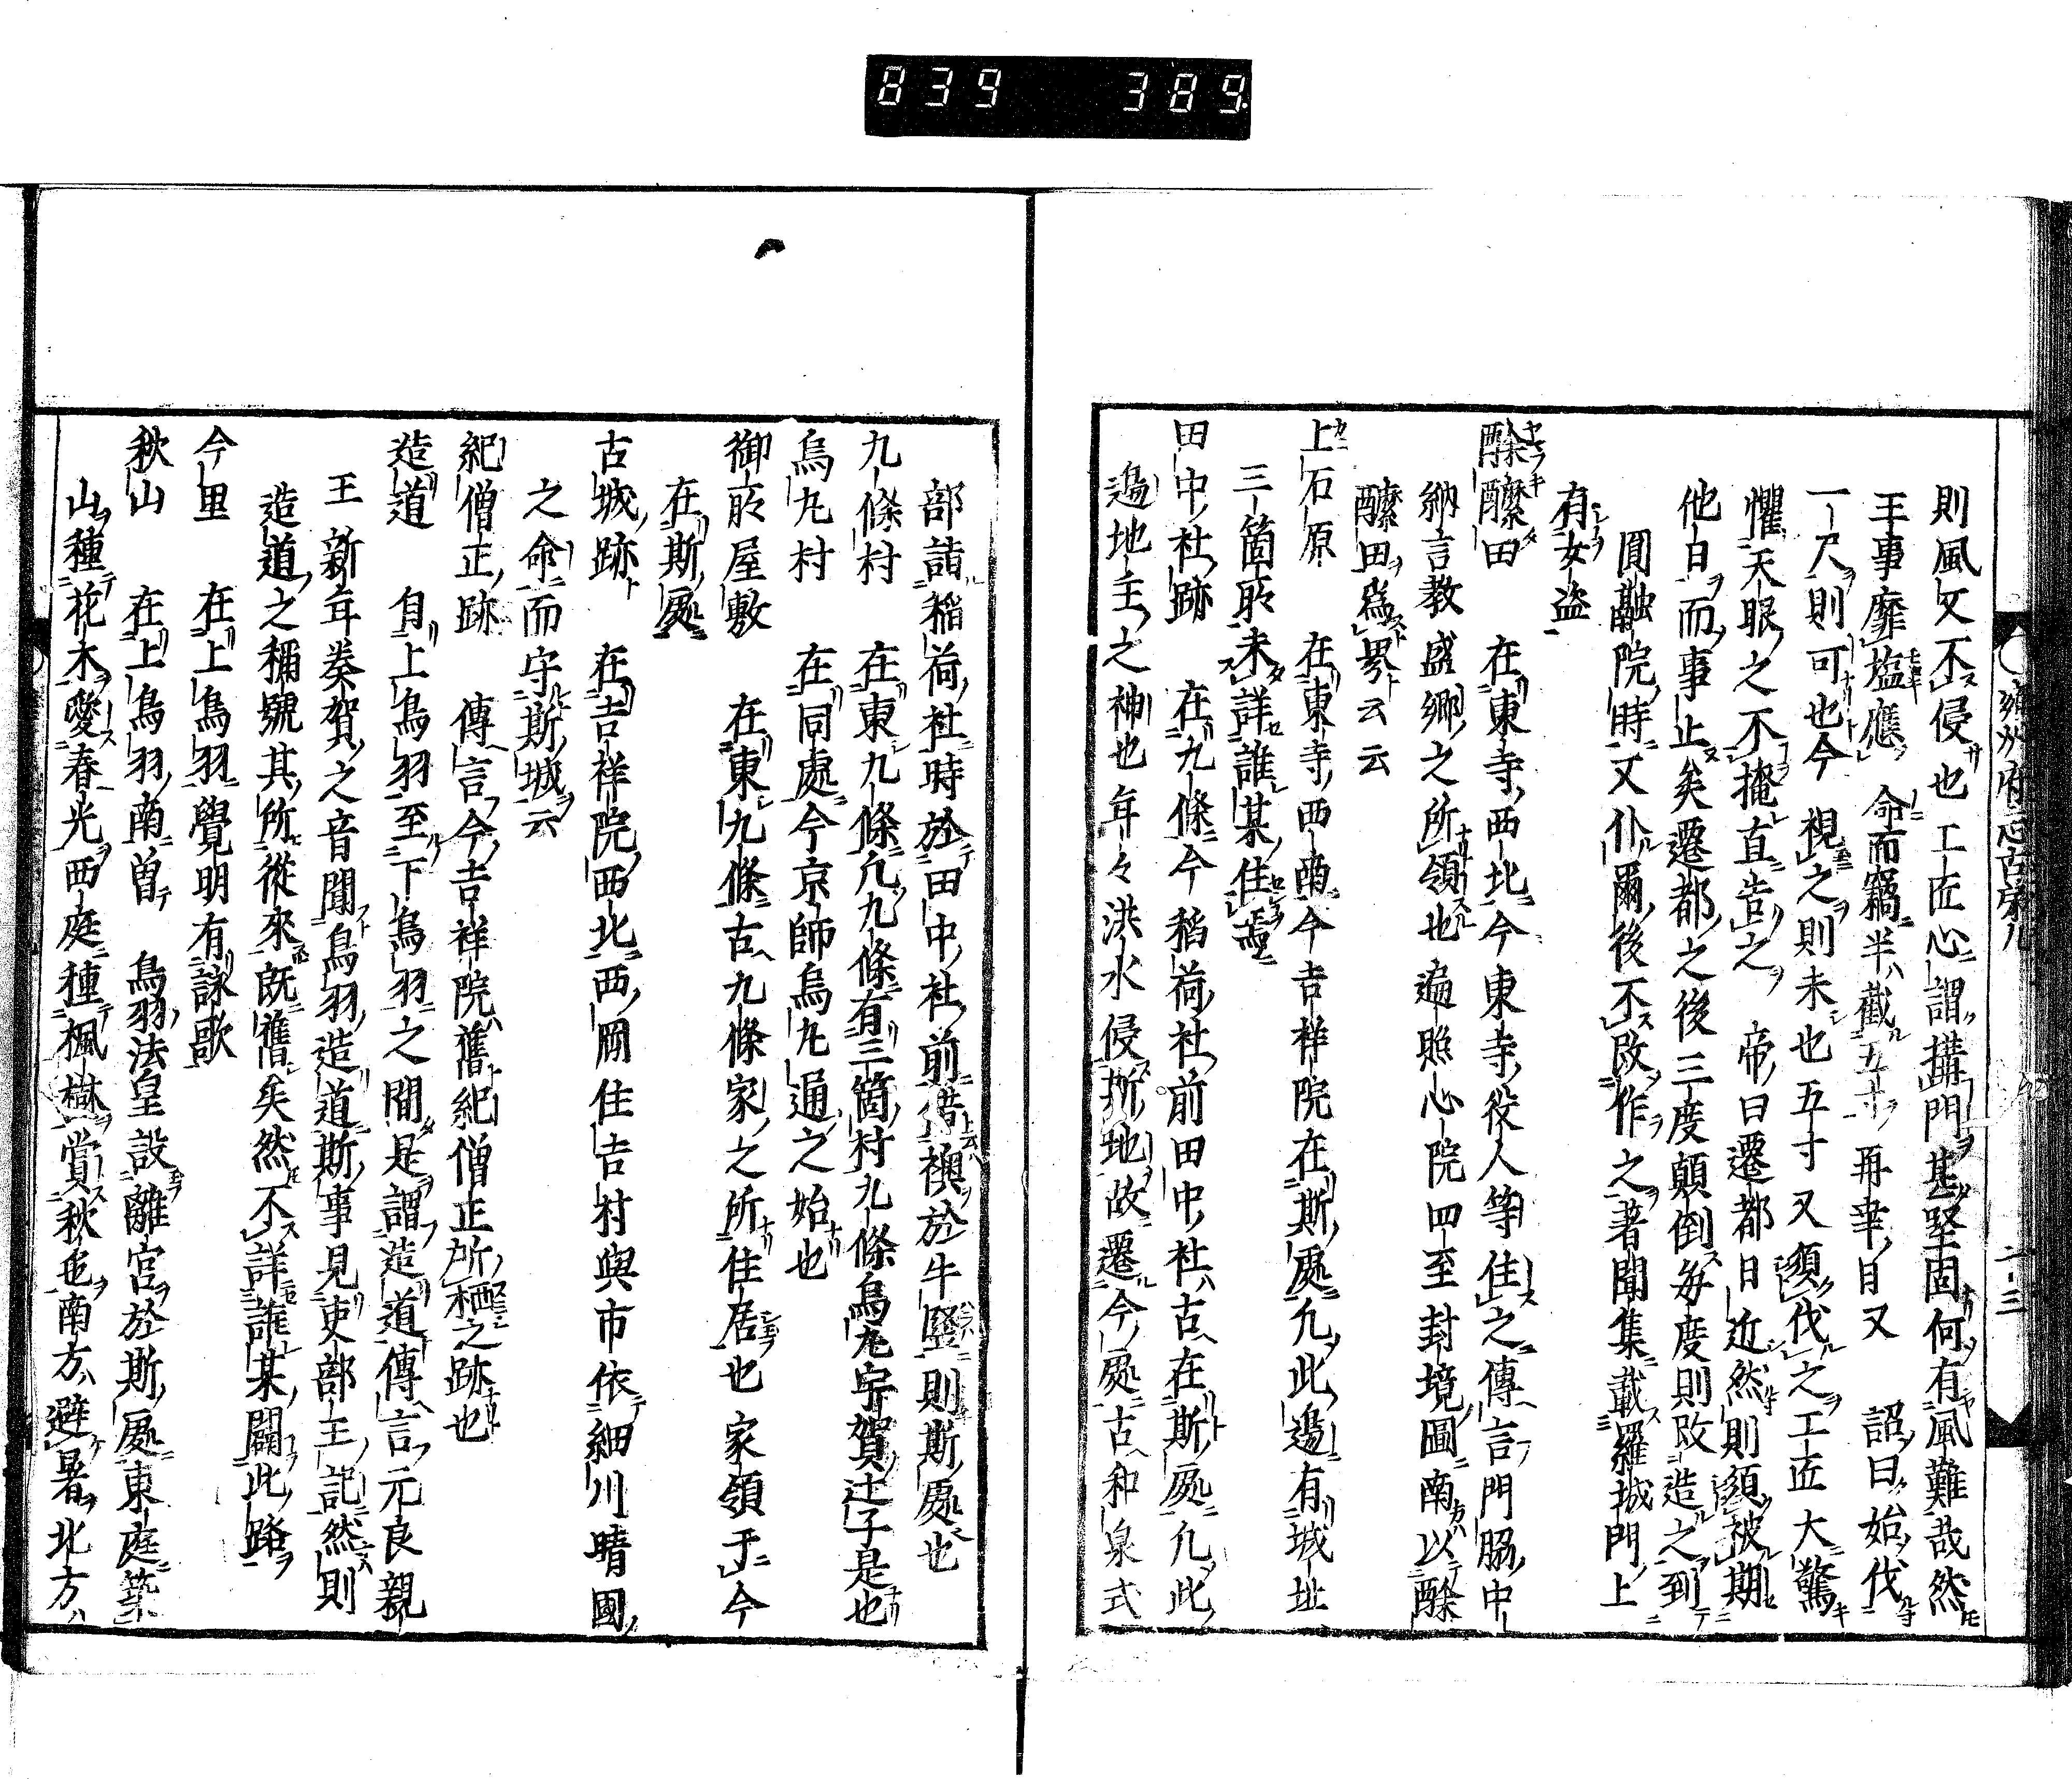 839 389
雍州府志古第九
二十三
則風又不侵也工匠心謂搆門甚堅固何有風難哉然
王事靡盬應命而竊半截五寸再幸日又詔曰始伐
一尺則可也今視之則未也五寸又須伐之工匠大驚
懼天眼之不掩直告之帝曰遷都日近然則須被期
他日而事止矣遷都之後三度顛倒毎度則改造之到
圓融院時又仆爾後不改作之著聞集載羅城門上
有女盗
醶醿田 在東寺西北今東寺役人等住之傳言門脇中
納言教盛郷之所領也遍照心院四至封境圖南以醶
醿田爲畍云云
上石原 在東寺西南今吉祥院在斯處凡此邊有城址
三箇所未詳誰某住焉
田中社跡 在九條今稲荷社前田中社古在斯處凡此
邊地主之神也年々洪水侵斯地故遷今處古和泉式
部詣稲荷社時於田中社前借襖於牛豎則斯處也
九條村 在東九條凢九條有三箇村九條烏丸宇賀辻子是也
烏丸村 在同處今京師烏丸通之始也
御所屋敷 在東九條古九條家之所住居也家領于今
在斯處
古城跡 在吉祥院西北西岡住吉村與市依細川晴國
之命而守斯城云
紀僧正跡 傳言今吉祥院舊紀僧正所栖之跡也
造道 自上鳥羽至下鳥羽之間是謂造道傳言元良親
王新年奏賀之音聞鳥羽造道斯事見吏部王記然則
造道之稱號其所從來既舊矣然不詳誰某闢此路
今里 在上鳥羽覺明有詠歌
秋山 在上鳥羽南曽鳥羽法皇設離宮於斯處東庭築
山種花木愛春光西庭種楓樹賞秋色南方避暑北方